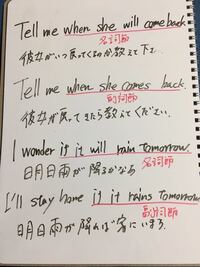 Tell me when she will come back.
名詞節
彼女がいつ戻ってくるか教えて下さい。
Tell me when she comes back.
副詞節
彼女が戻ってきたら教えてください。
I wonder if it will rain tomorrow.
名詞節
明日雨が降るかなぁ
I'll stay home if it rains tomorrow.
副詞節
明日雨が降れば家にいよう。